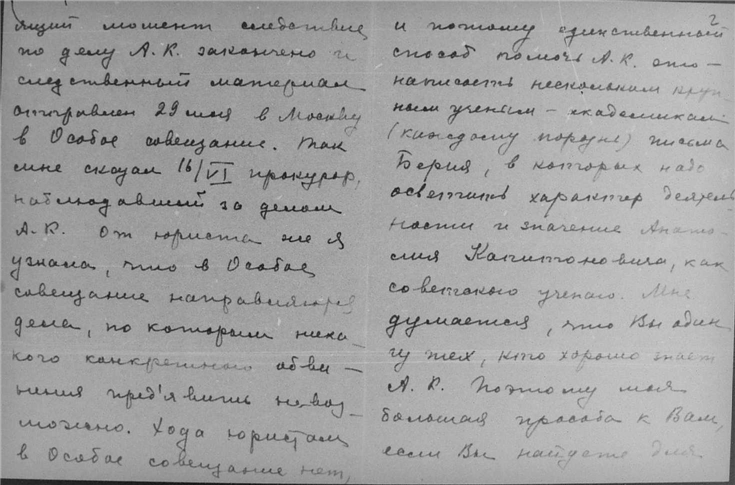 ящий момент следствие
по делу А.К. закончено и
следственный материал
отправлен 29 мая в Москву
в Особое совещание. Так
мне сказал 16/VI прокурор,
наблюдавший за делом
А.К. От юриста же я
узнала, что в Особое
совещание направляются
дела, по которым ника-
кого конкретного обви-
нения пред'явить невоз-
можно. Хода юристам
в Особое совещание нет,
2
и потому единственный
способ помочь А.К. это —
написать нескольким круп-
ным ученым — академикам
(каждому порознь) письма
Берия, в которых надо
осветить характер деятель-
ности и значение Анато-
лия Капитоновича, как
советского ученого. Мне
думается, что Вы один
из тех, кто хорошо знает
А.К. Поэтому моя
большая просьба к Вам,
если Вы найдете для